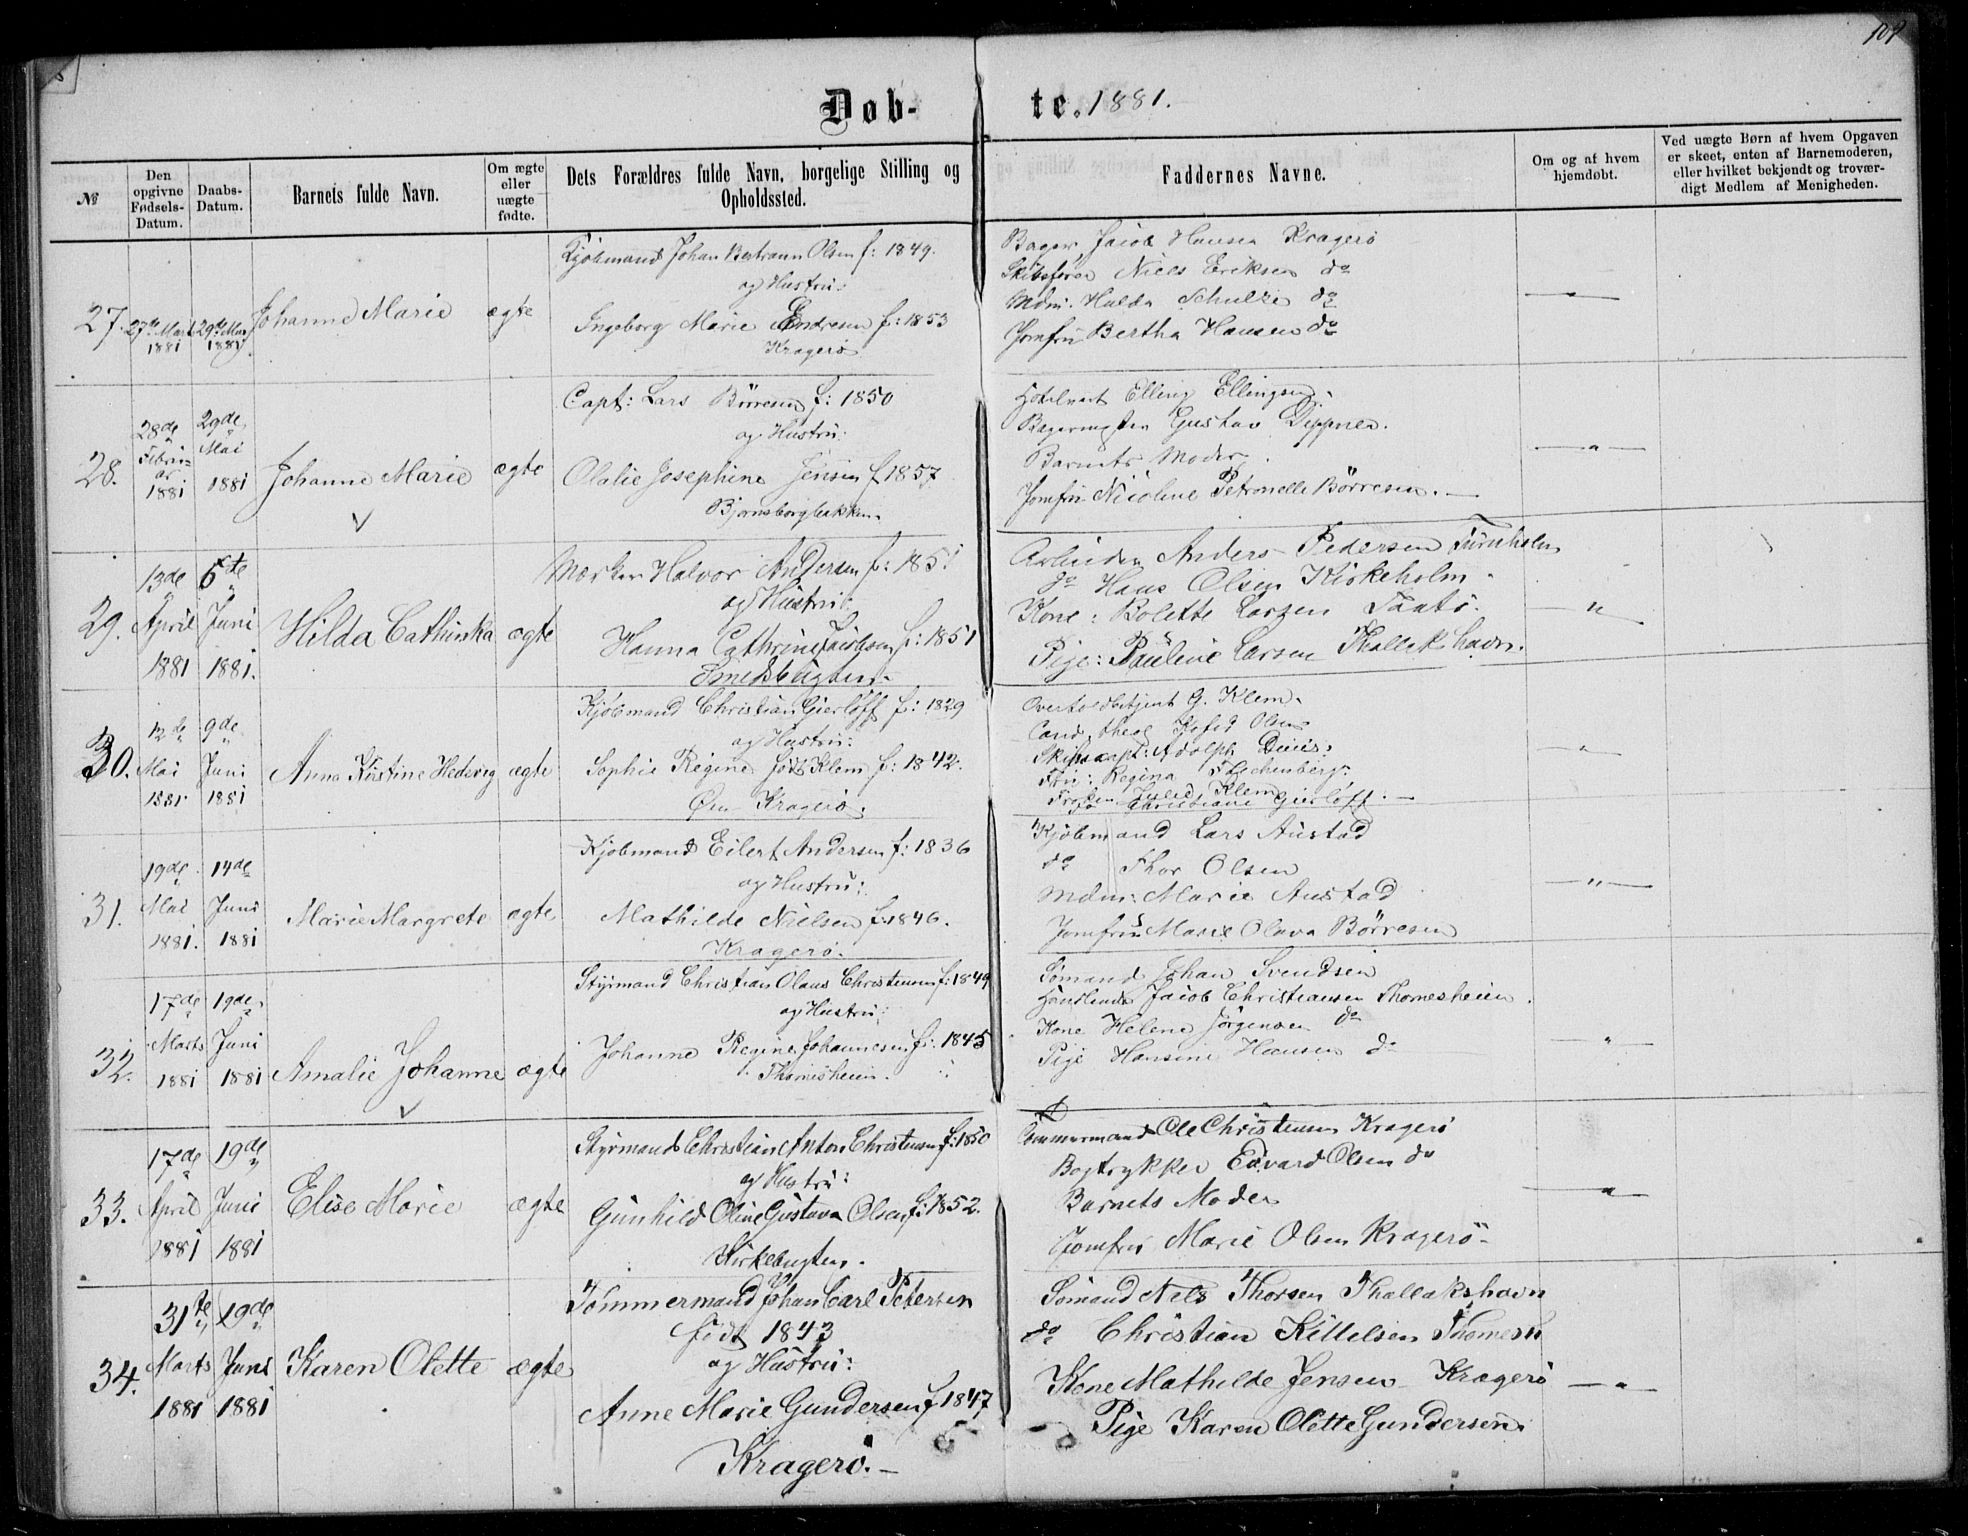 109
Døb-te. 1881.
№
Den opgivne Fødsels-Datum.
Daabs-Datum.
Barnets fulde Navn.
Om ægte eller uægte fødte.
Dets Forældres fulde Navn, borgelige Stilling og Opholdssted.
Faddernes Navne.
Om og af hvem hjemdøbt.
Ved uægte Børn af hvem Opgaven er skeet, enten af Barnemoderen, eller hvilket bekjendt og troværdigt Medlem af Menigheden.
27.
27de Marts 1881
29de Mai 1881
Johanne Marie
ægte
Kjöbmand Johan Bertrann Olsen f: 1849.
og Hustru:
Ingeborg Marie Endresen f: 1853
Kragerö
Bager Jacob Hansen Kragerö
Skibsförer Niels Eriksen do
Mdm: Hulda Schulze do
Jomfru Bertha Hansen do
28.
28de Februar 1881
29de Mai 1881
Johanne Marie
ægte
Capt: Lars Börresen f: 1850
og Hustru:
Olalie Josephine Jensen f 1857
Bjornsborgbakken.
Hotelvert Elling Ellingsen.
Bagermester Gustav
Barnets Moder.
Jomfru Nicoline Petronelle Börresen.
29.
13de April 1881
6te Juni 1881.
Hilda Cathinka
ægte
Mærker Halvor Andersen f: 1851
og Hustru:
Hanna Cathrine Jacobsen f: 1851
Smedsbugten.
Arbeider Anders Pedersen Furuholm
do Hans Olsen Kirkeholm.
Kone: Bolette Larsen Taatö.
Pige: Pauline Larsen Thallakshavn.
30.
12de Mai 1881
9de Juni 1881
Anna Kirstine Hedevig
ægte
Kjöbmand Christian Gierløff f: 1829
og Hustru:
Sophie Regine föd Klem f: 1842.
Öen Kragerö.
Overtoldbetjent G. Klem.
Cand. theol Olsen
Skibscapt: Adolph
Fru: Regina
Fröken Julie Klem
Christiane Gierløff.
31.
19de Mai 1881.
14de Juni 1881
Marie Margrete
ægte
Kjöbmand Eilert Andersen f: 1836
og Hustru:
Mathilde Nielsen f: 1846.
Kragerö.
Kjöbmand Lars Austad
do Thor Olsen
Mdm: Marie Austad
Jomfru Marie Olava Börresen
32.
17de Marts 1881
19de Juni 1881
Amalie Johanne
ægte
Styrmand Christian Olaus Christensen f: 1849
og Hustru:
Johanne Regine Johannesen f: 1845
Thomesheien.
Sömand Johan Svendsen
Handlende Jacob Christiansen Thomesheien.
Kone Helene Jörgensen do
Pige Hansine Hansen do
33.
17de April 1881
19de Juni 1881
Elise Marie
ægte
Styrmand Christian Anton Christensen f: 1850
og Hustru:
Gunhild Oline Gustava Olsen f: 1852.
Kirkebugten.
Tömmermand Ole Christensen Kragerö
Bogtrykker Edvard Olsen do
Barnets Moder
Jomfru Marie Olsen Kragerö
34.
31te Marts 1881
19de Juni 1881
Karen Olette
ægte
Tömmermand Johan Carl Petersen
född 1843
og Hustru:
Anne Marie Gundersen f 1847
Kragerö.
Sömand Nils Thorsen Thallakshavn
do Christian Kittelsen Thomesh
Kone Mathilde Jensen Kragerö
Pige Karen Olette Gundersen